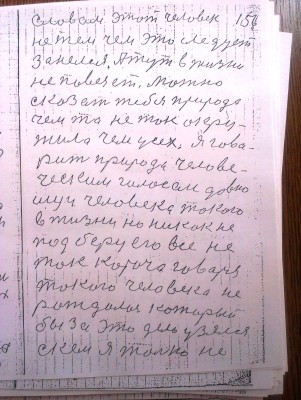 словам этот человек 15
не тем чем это следует
занелся, А тут в жизни
не повезет, можно
сказат тебя природа
чем та не ток окру-
жила чем усех, Я гова-
рит природа челове-
ческим голосам довно
ишу человека токого
в жизни но никак не
под беру его все не
ток короча говаря
токого человека не
рождалос который
бы за это дело узялся
с кем я толко не